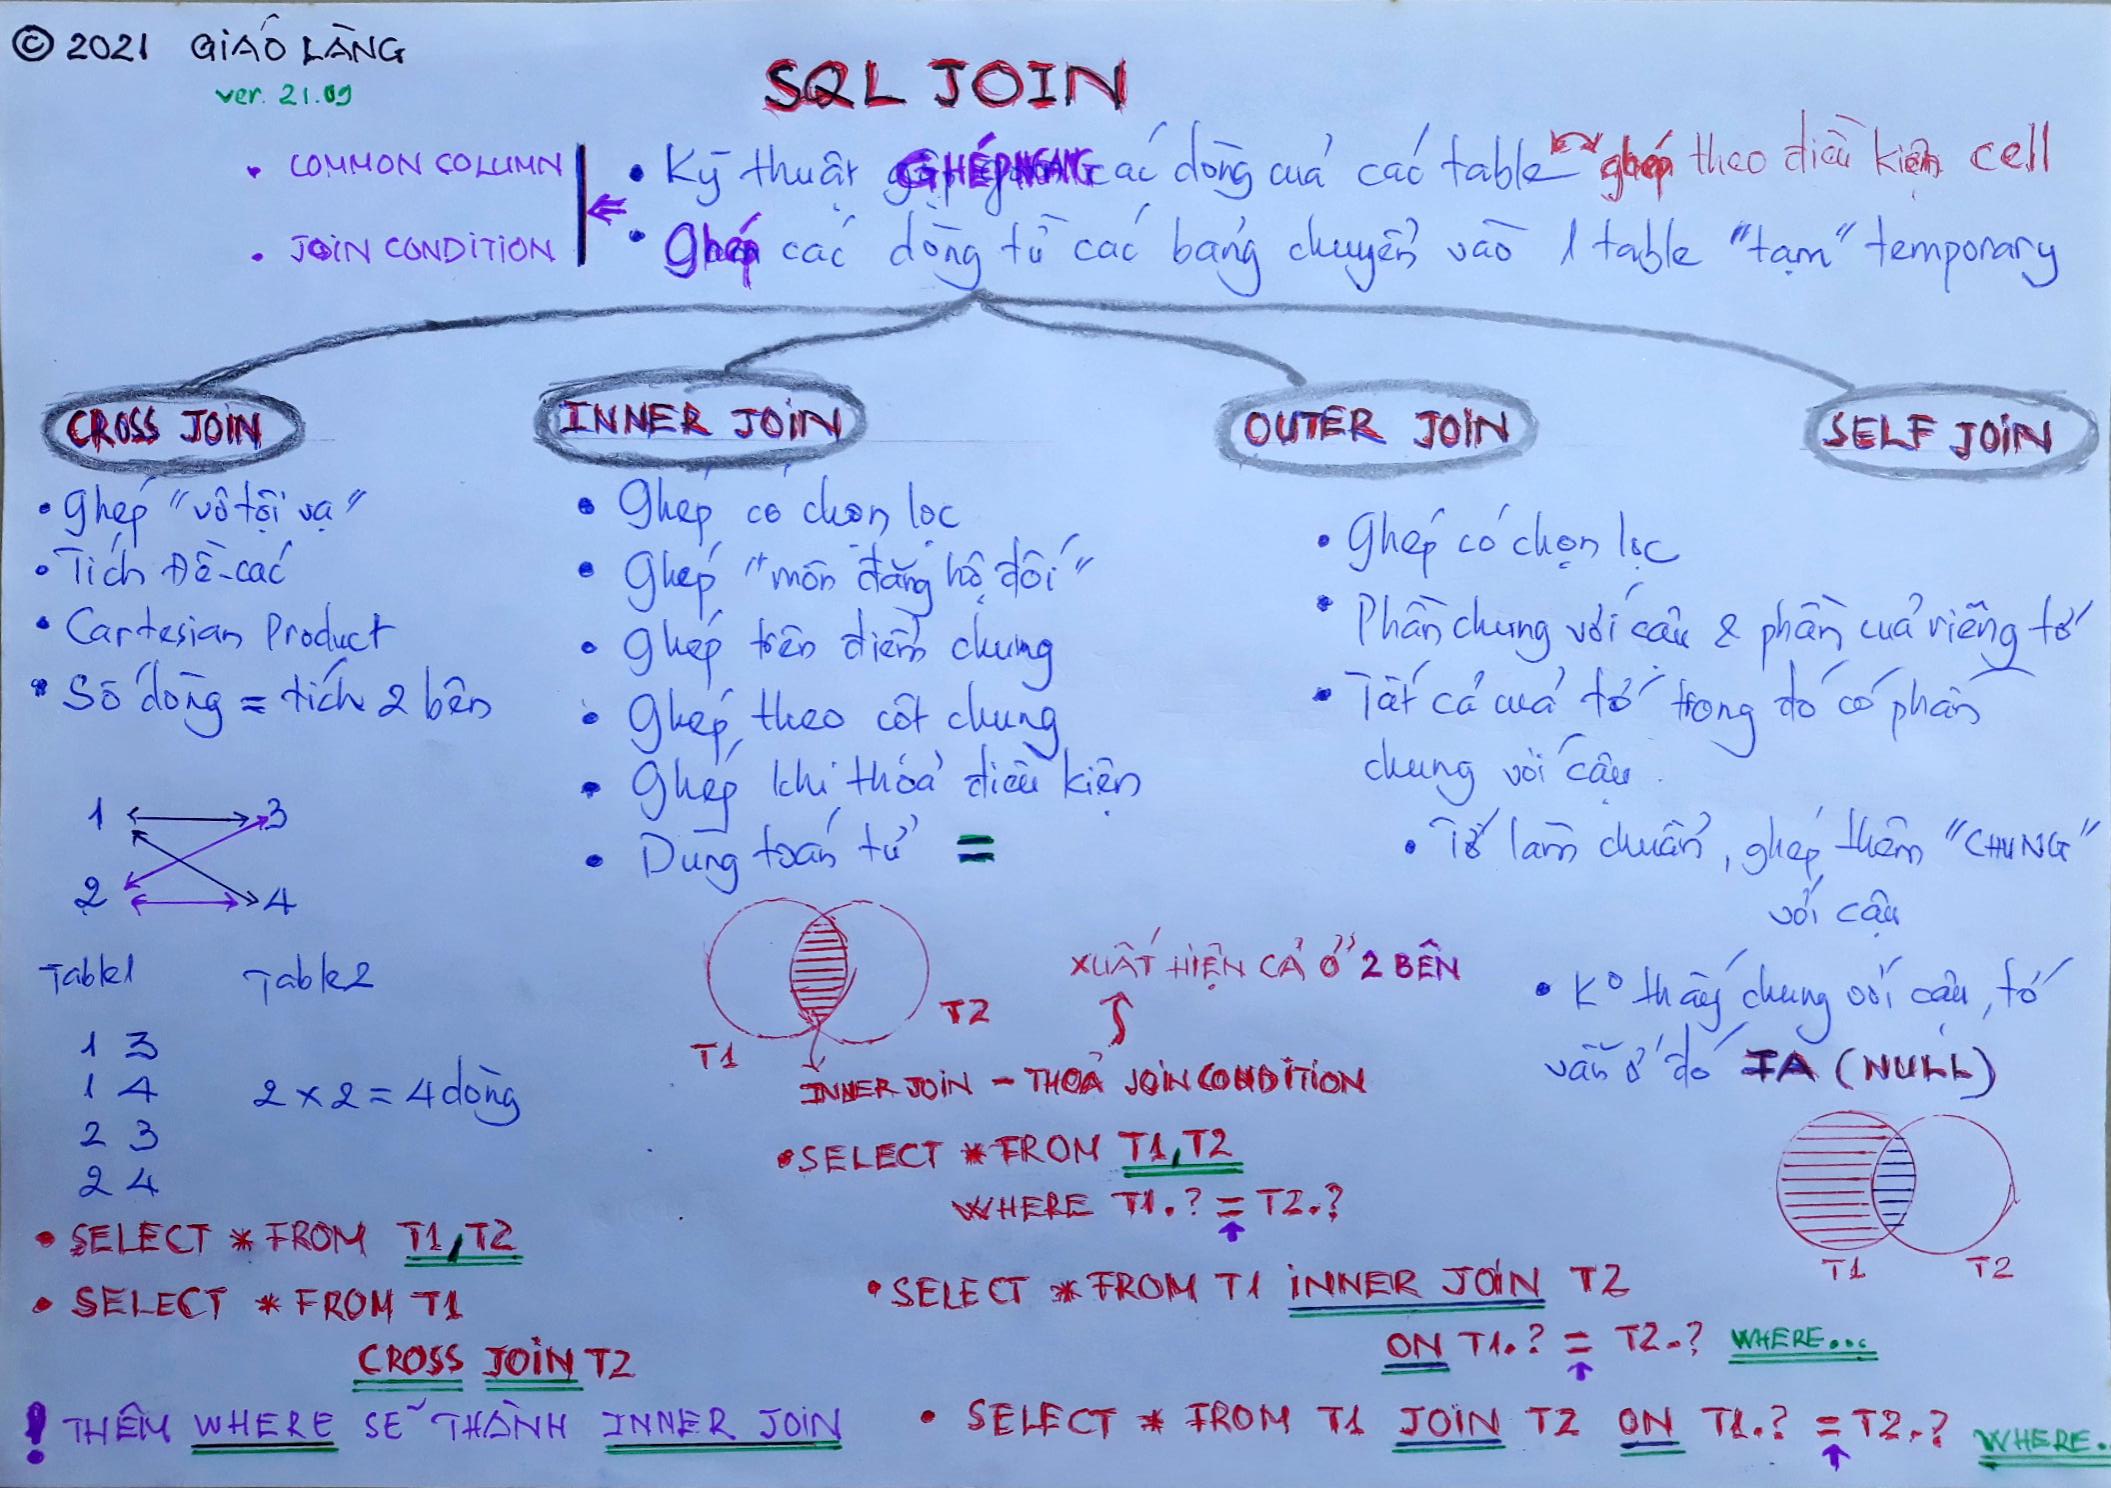 © 2021 GIÁO LÀNG
ver. 21.09
SQL JOIN
• COMMON COLUMN
• JOIN CONDITION
• Kỹ thuật GHÉP NGANG các dòng của các table ghép theo điều kiện cell
• Ghép các dòng từ các bảng chuyển vào 1 table "tạm" temporary
CROSS JOIN
• Ghép "vô tội vạ"
• Tích Đề-các
• Cartesian Product
• Số dòng = tích 2 bên
1 3
2 4
Table1 Table2
1 3
1 4
2 3
2 4
2 x 2 = 4 dòng
• SELECT * FROM T1, T2
• SELECT * FROM T1
CROSS JOIN T2
! THÊM WHERE SẼ THÀNH INNER JOIN
INNER JOIN
• Ghép có chọn lọc
• Ghép "môn đăng hộ đối"
• Ghép trên điểm chung
• Ghép theo cột chung
• Ghép khi thỏa điều kiện
• Dùng toán tử =
T1
T2
XUẤT HIỆN CẢ Ở 2 BÊN
INNER JOIN - THOẢ JOIN CONDITION
• SELECT * FROM T1, T2
WHERE T1.? = T2.?
• SELECT * FROM T1 INNER JOIN T2
ON T1.? = T2.? WHERE...
• SELECT * FROM T1 JOIN T2 ON T1.? = T2.? WHERE..
OUTER JOIN
• Ghép có chọn lọc
• Phần chung với cậu & phần của riêng tớ
• Tất cả của tớ trong đó có phần
chung với cậu.
• Tớ làm chuẩn, ghép thêm "CHUNG"
với cậu
• K° thấy chung với cậu, tớ
vẫn ở đó FA (NULL)
T1 T2
SELF JOIN